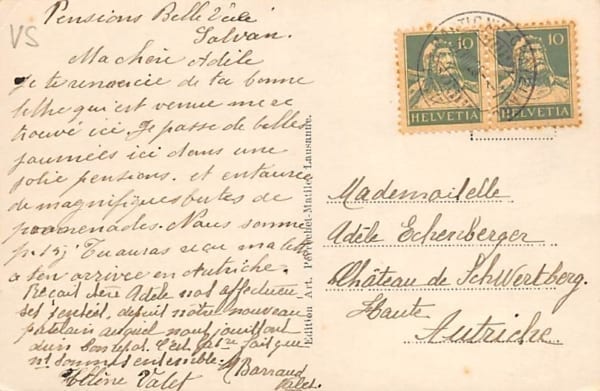 VS
Pensions Belle Vue
Salvan.
Ma chère Adèle
Je te remercie de ta bonne
lettre qui est venue me
trouvé ici. Je passe de belles
journées ici dans une
jolie pensions. et entourée
de magnifiques butes de
promenades. Nous somme
p. 15, Tu auras reçu ma lett
a son arrivée en Autriche.
Reçoit chère Adèle nos affectueu-
ses depuis notre nouveau
nous jouissons
C'est fait que
ns sommes ensemble. M Barraud
Hélène Valet
10
10
HELVETIA
HELVETIA
Edition Art. Perrochet-Matile, Lausanne.
Mademoiselle
Adèle Echenberger
Château de SchWertberg.
Haute
Autriche